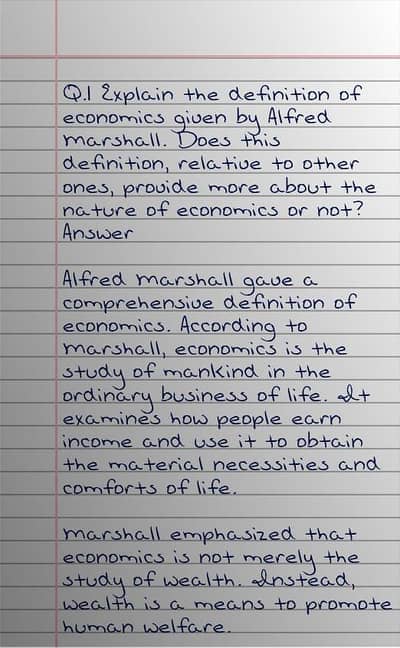 Q.1 Explain the definition of
economics given by Alfred
marshall. Does this
definition, relative to other
ones, provide more about the
nature of economics or not?
Answer
Alfred marshall gave a
comprehensive definition of
economics. According to
marshall, economics is the
study of mankind in the
ordinary business of life. It
examines how people earn
income and use it to obtain
the material necessities and
comforts of life.
marshall emphasized that
economics is not merely the
study of wealth. Instead,
wealth is a means to promote
human welfare.